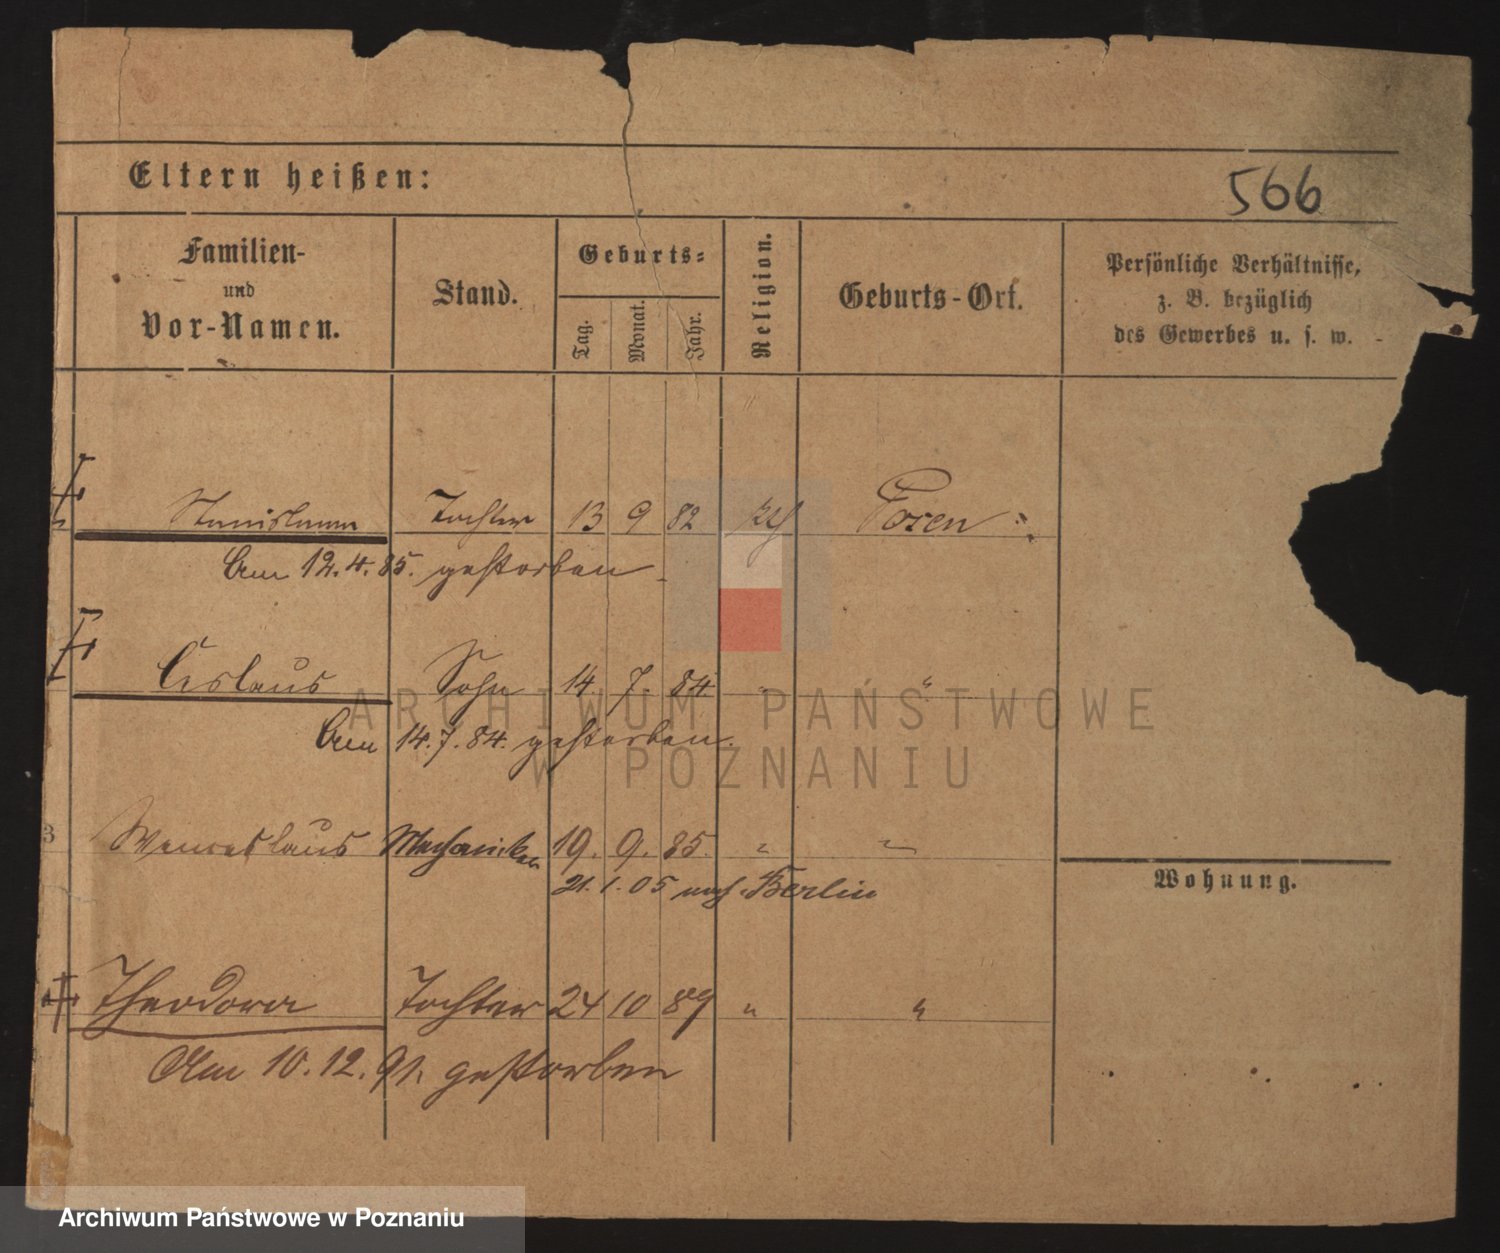 Eltern heißen:
566
Familien-
und
Vor-Namen.
Stand.
Geburts-
Tag.
Monat.
Jahr.
Religion.
Geburts-Ort.
Persönliche Verhältnisse,
z. B. bezüglich
des Gewerbes u. s. w.
Tochter 13 9 82 Posen
Am 12.4.85. gestorben
Ceslaus Sohn 14 7. 84 " "
Am 14.7.84. gestorben.
ARCHIWUM PAŃSTWOWE
W POZNANIU
3 Wenceslaus Mechaniker 19. 9. 85. " "
21.1.05 nach Berlin
Wohnung.
Theodora Tochter 24 10 89 " "
Am 10.12.91. gestorben
Archiwum Państwowe w Poznaniu